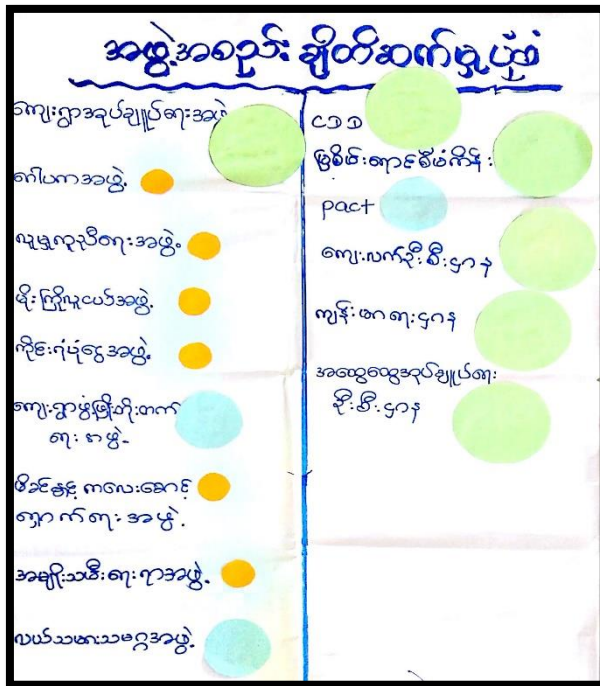 အဖွဲ့အစည်း ချိတ်ဆက်မှုပုံစံ
ကျေးရွာအုပ်ချုပ်ရေးအဖွဲ့
လူမှုကူညီရေးအဖွဲ့
မိုးကြိုလူငယ်အဖွဲ့
ကိုင်းရံပုံငွေအဖွဲ့
ကျေးရွာဖွံ့ဖြိုးတိုးတက်
ရေး အဖွဲ့
မိခင်နှင့် ကလေးစောင့်
ရှောက်ရေး အဖွဲ့
အမျိုးသမီးရေးရာအဖွဲ့
လယ်သမားသမဂ္ဂအဖွဲ့
CDD
မြစိမ်းရောင်စီမံကိန်း
pact
ကျေးလက်ဦးစီးဌာန
ကျန်းမာရေးဌာန
အထွေထွေအုပ်ချုပ်ရေး
ဦးစီးဌာန